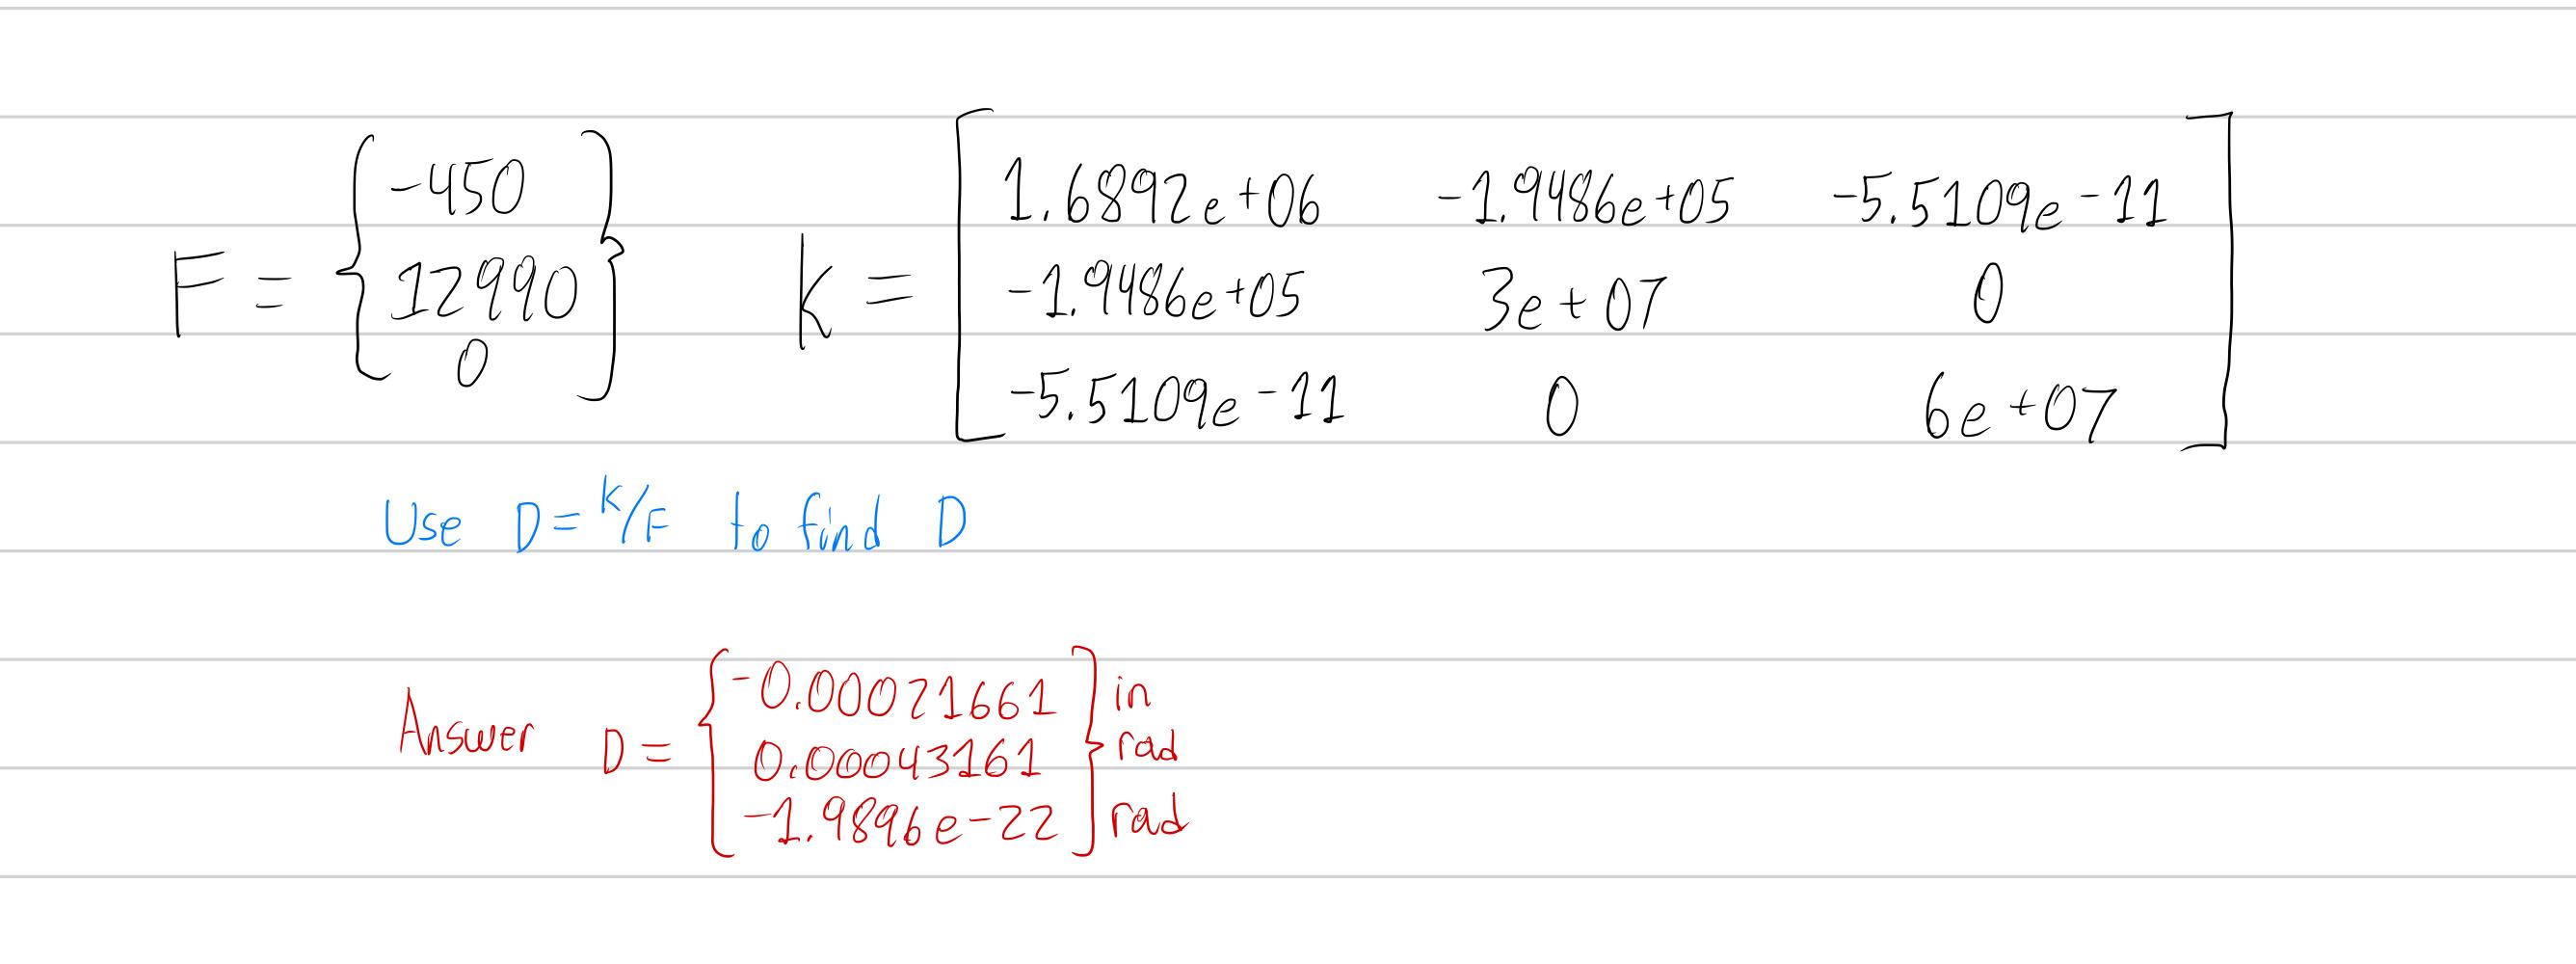 F = { -450 12990 0 } K = [ 1.6892e+06 -1.9486e+05 -5.5109e-11
-1.9486e+05 3e+07 0
-5.5109e-11 0 6e+07 ]
Use D = K/F to find D
Answer D = { -0.00021661 in
0.00043161 rad
-1.9896e-22 } rad